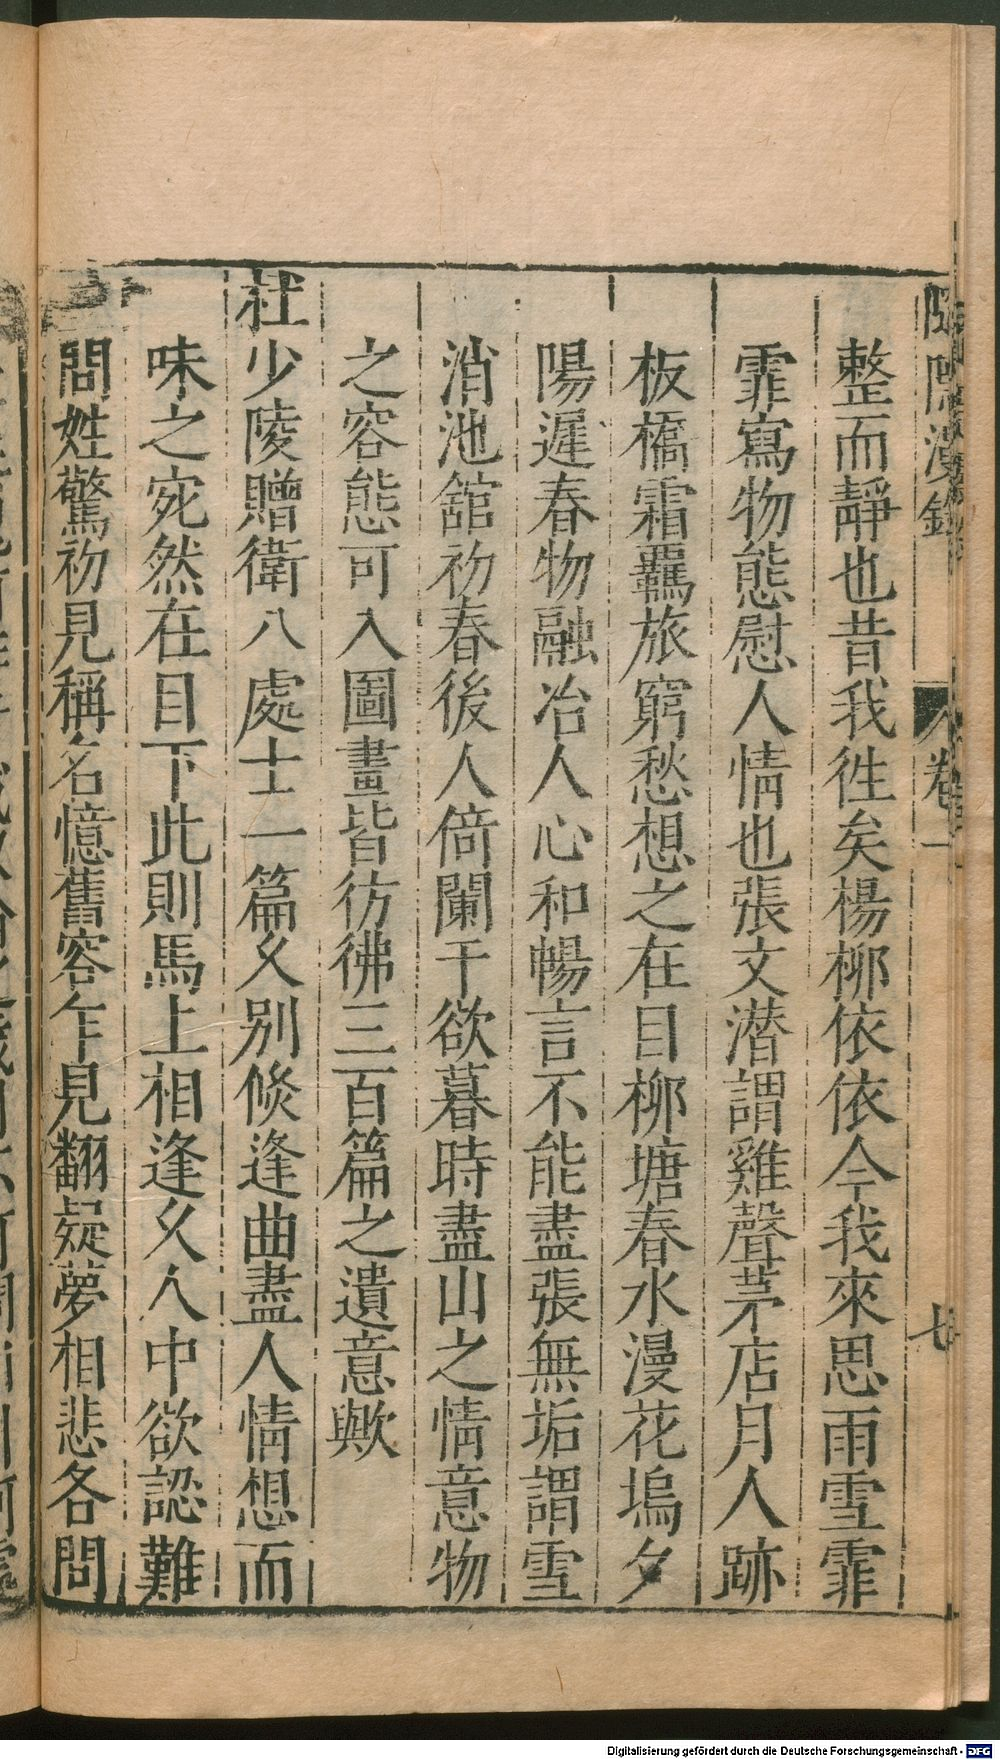 整而靜也昔我徃矣楊栁依依今我來思雨雪霏
霏寫物態慰人情也張文潜謂雞聲茅店月人跡
板橋霜羈旅窮愁想之在目栁塘春水漫花塢夕
陽遲春物融冶人心和暢言不能盡張無垢謂雪
消池舘初春後人倚闌干欲暮時盡山之情意物
之容態可入圖畫皆彷彿三百篇之遺意歟
杜少陵贈衛八處士一篇久别倐逢曲盡人情想而
味之宛然在目下此則馬上相逢久人中欲認難
問姓驚初見稱名憶舊容乍見翻疑夢相悲各問
卷一
七
Digitalisierung gefördert durch die Deutsche Forschungsgemeinschaft - DFG